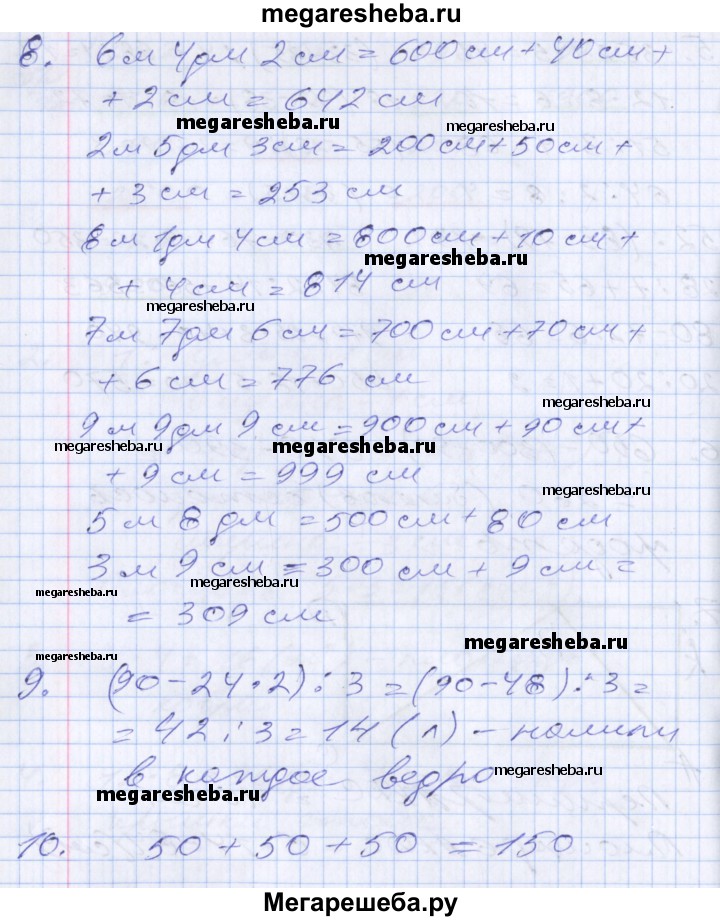 megaresheba.ru
8. 6м 4дм 2см = 600см + 40см +
+ 2см = 642 см
megaresheba.ru megaresheba.ru
2м 5дм 3см = 200см + 50см +
+ 3 см = 253 см
8м 1дм 4см = 800см + 10 см +
megaresheba.ru
+ 4см = 814 см
megaresheba.ru
7м 7дм 6см = 700см + 70см +
+ 6см = 776 см
megaresheba.ru
9м 9дм 9 см = 900см + 90см +
megaresheba.ru megaresheba.ru
+ 9см = 999 см
megaresheba.ru
5 м 8 дм = 500см + 80 см
3м 9см = 300 см + 9 см =
megaresheba.ru
megaresheba.ru
= 309 см
megaresheba.ru
megaresheba.ru
9. (90 - 24 · 2) : 3 = (90 - 48) : 3 =
= 42 : 3 = 14 (л) - налили
в каждое ведро
megaresheba.ru
megaresheba.ru
10. 50 + 50 + 50 = 150
megaresheba.ru megaresheba.ru
Мегарешеба.ру